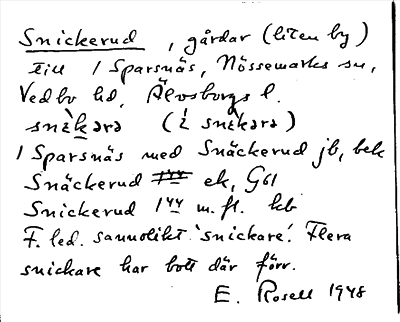 Snickerud, gårdar (liten by)
till 1 Sparsnäs, Nössemarks sn,
Vedbo hd, Älvsborgs l.
1 Sparsnäs med Snäckerud jb, bek
Snäckerud ek, G61
Snickerud 1 44 m. fl. kb
F. led. sannolikt 'snickare'. Flera
snickare har bott där förr.
E. Rosell 1948